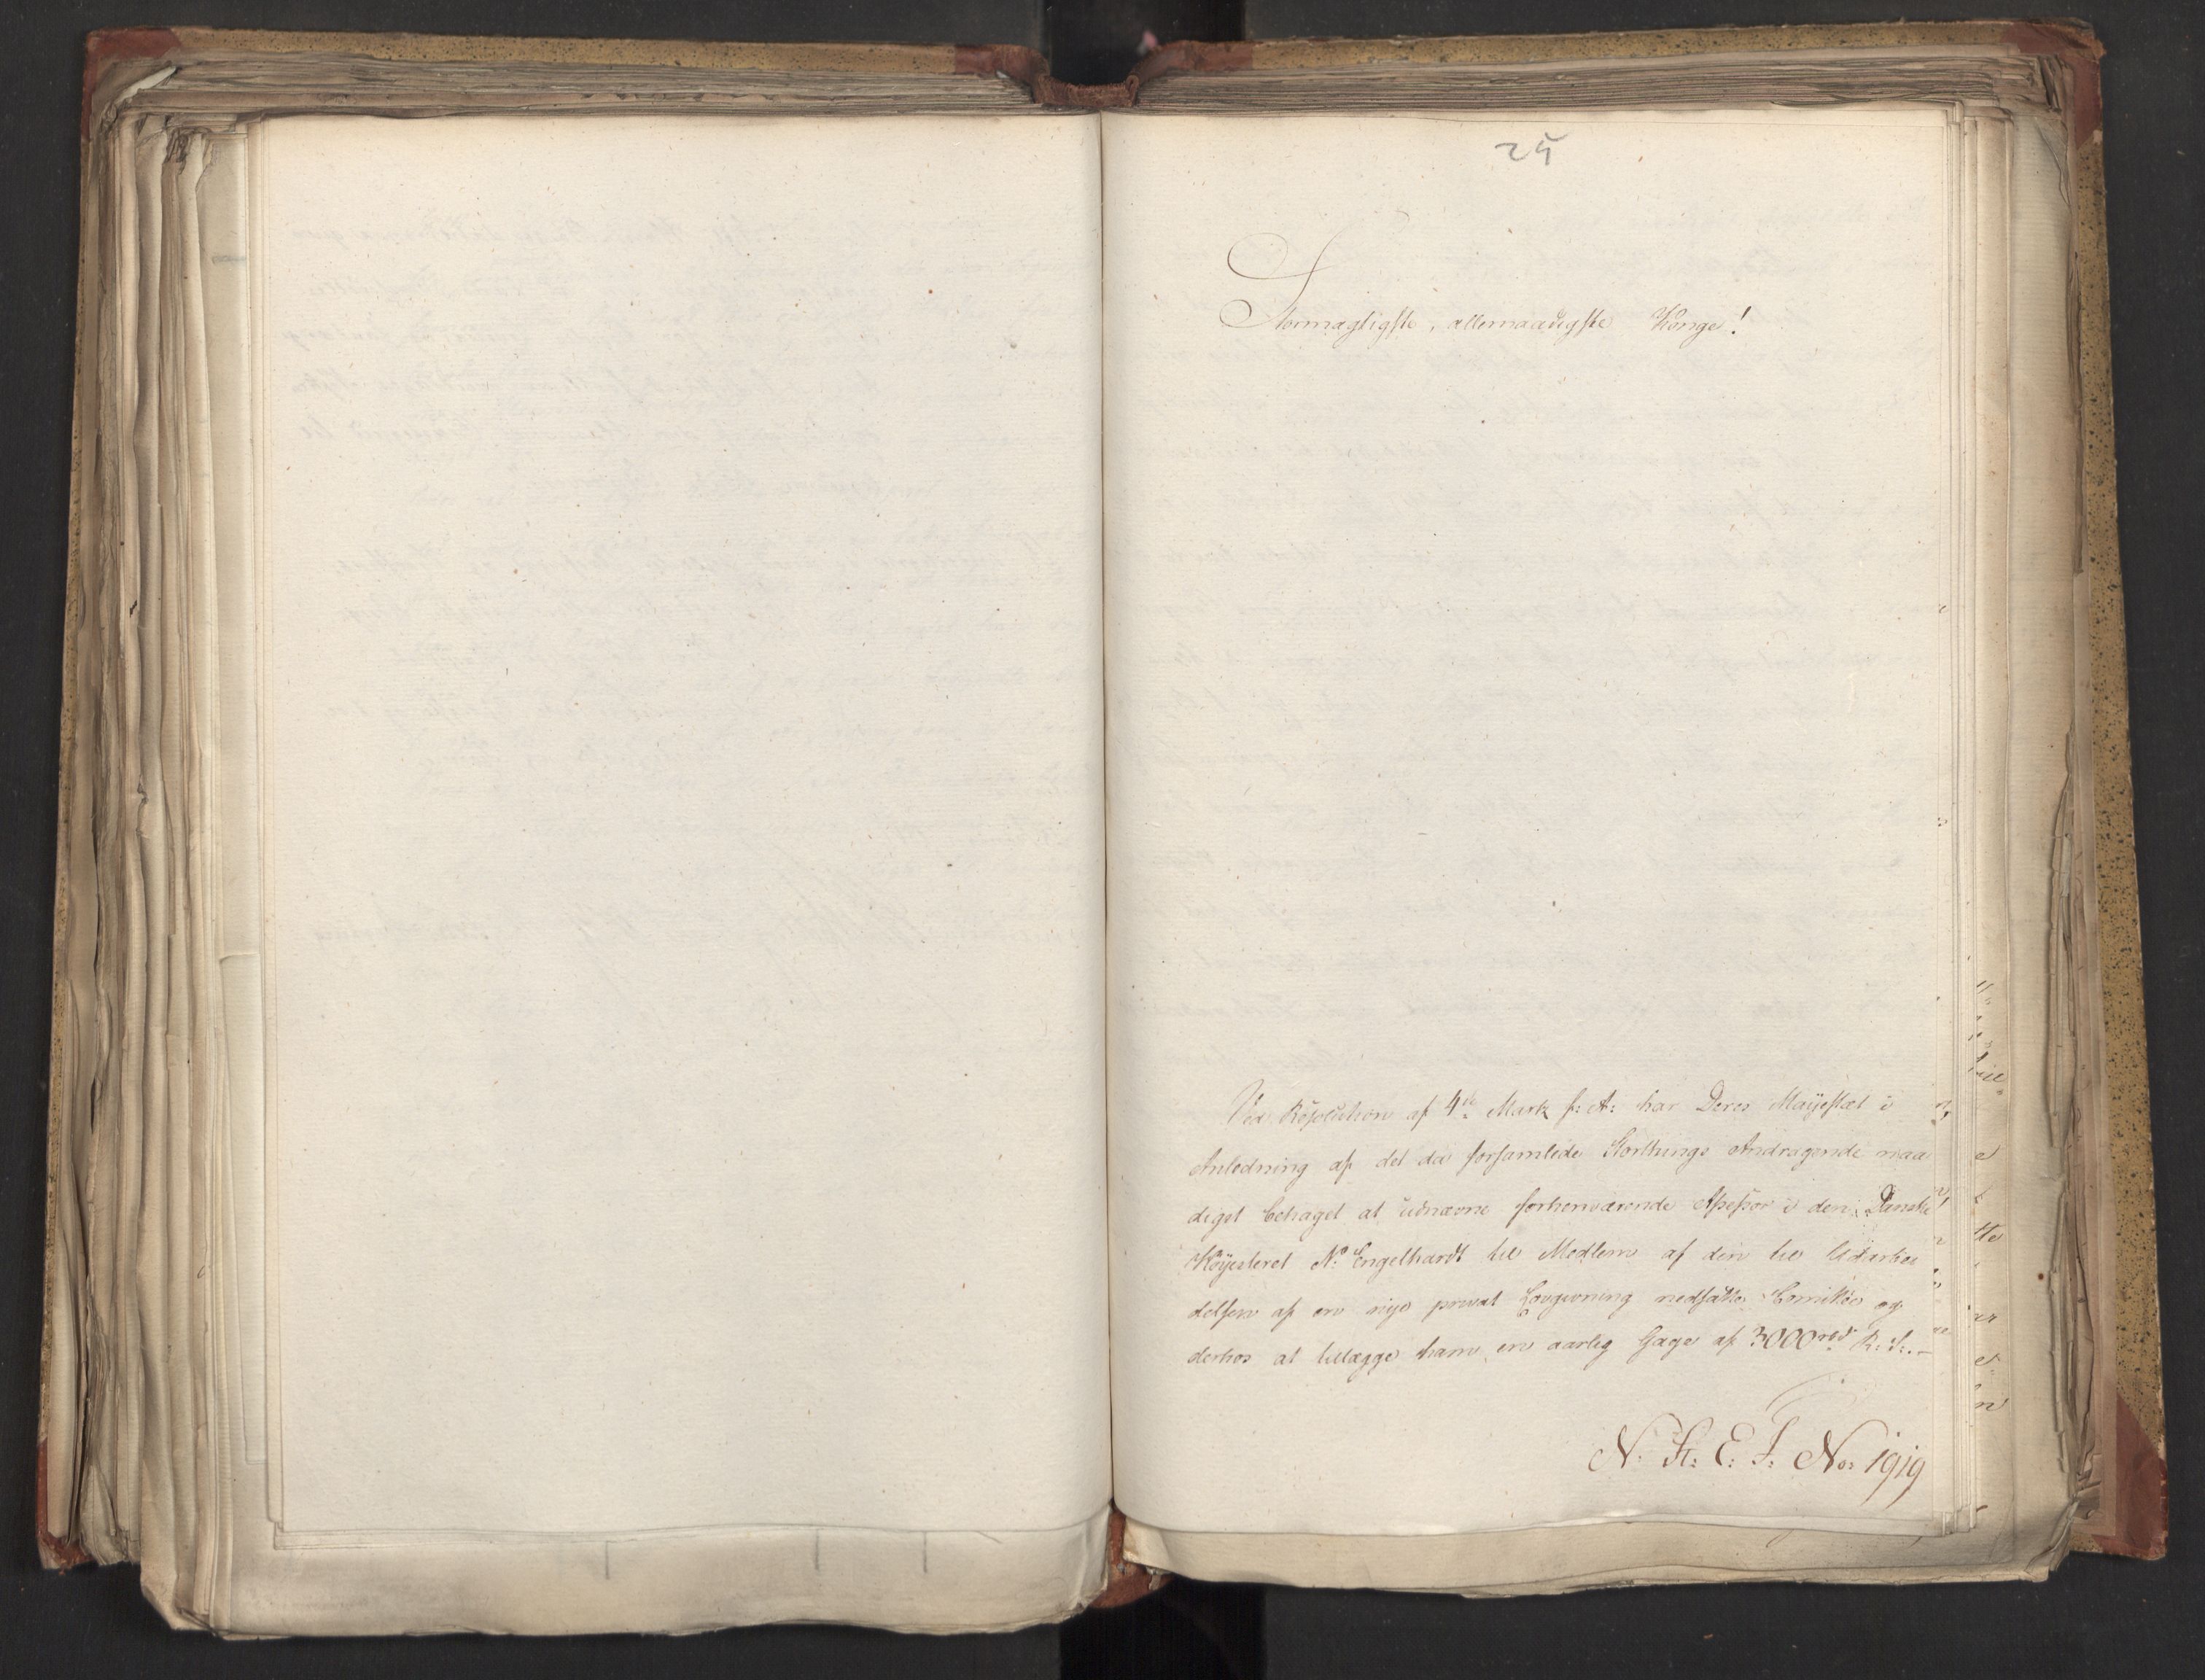 25
Stormægtigste, allernaadigste Konge!
Ved Resolution af 4de Marts f: A: har Deres Majestæt i
Anledning af det da forsamlede Storthings Andragende naa
digst behaget at udnævne forhenværende Assessor i den Danske
Højesteret N. Engelhardt til Medlem af den til Udarbei
delsen af en nye privat Lovgivning nedsatte Comittee og
derhos at tillægge ham en aarlig Gage af 3000 rbd R: S:. –
N. St: E. F: No: 1919